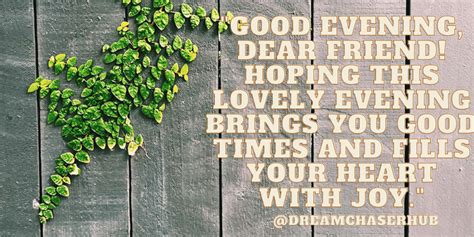 GOOD EVENING,
DEAR FRIEND!
HOPING THIS
LOVELY EVENING
BRINGS YOU GOOD
TIMES AND FILLS
YOUR HEART
WITH JOY."
@DREAMCHASERHUB